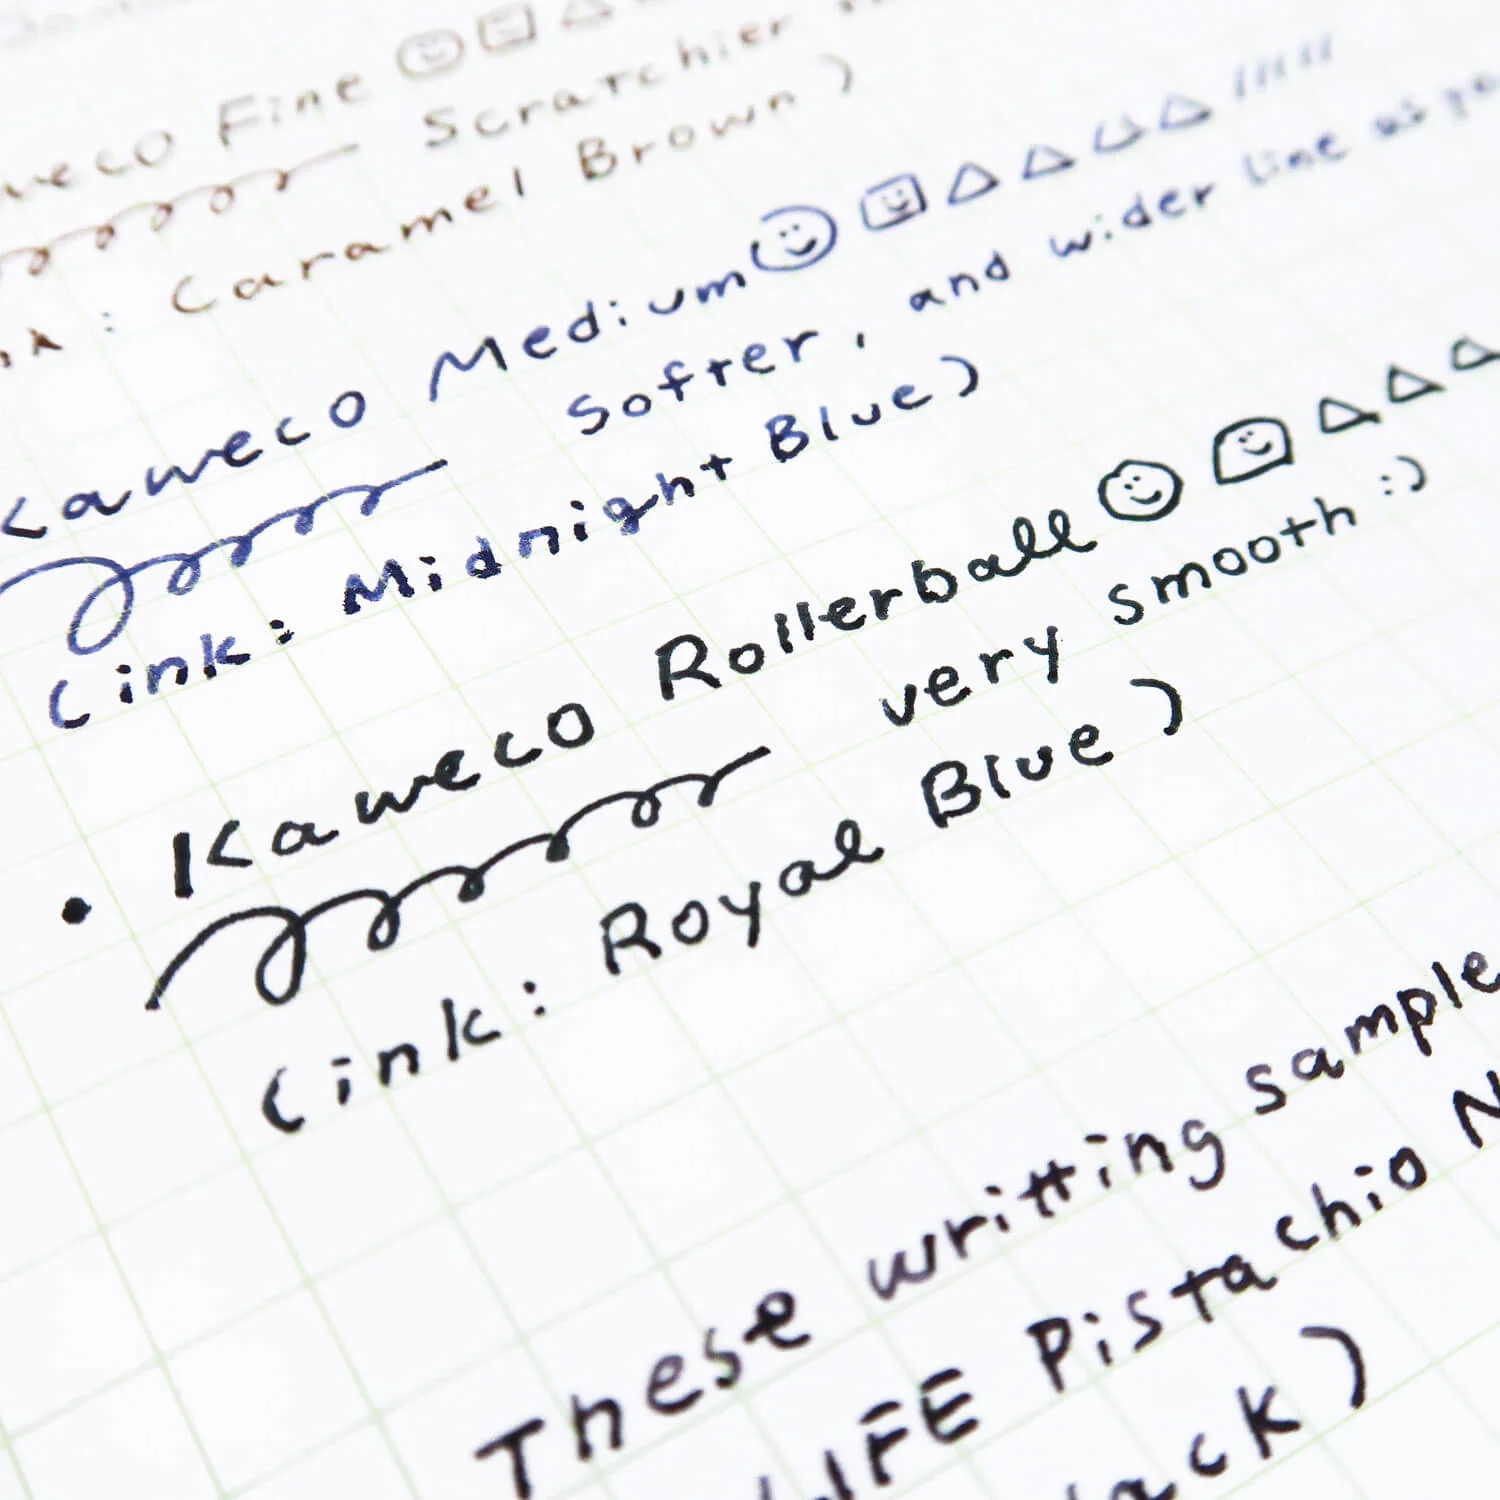 aweco Fine
Scratchier
nk : Caramel Brown)
Kaweco Medium
Softer, and wider line as yo
(ink: Midnight Blue)
• Kaweco Rollerball
very smooth :)
(ink: Royal Blue)
These writting sample
LIFE Pistachio N
ack)